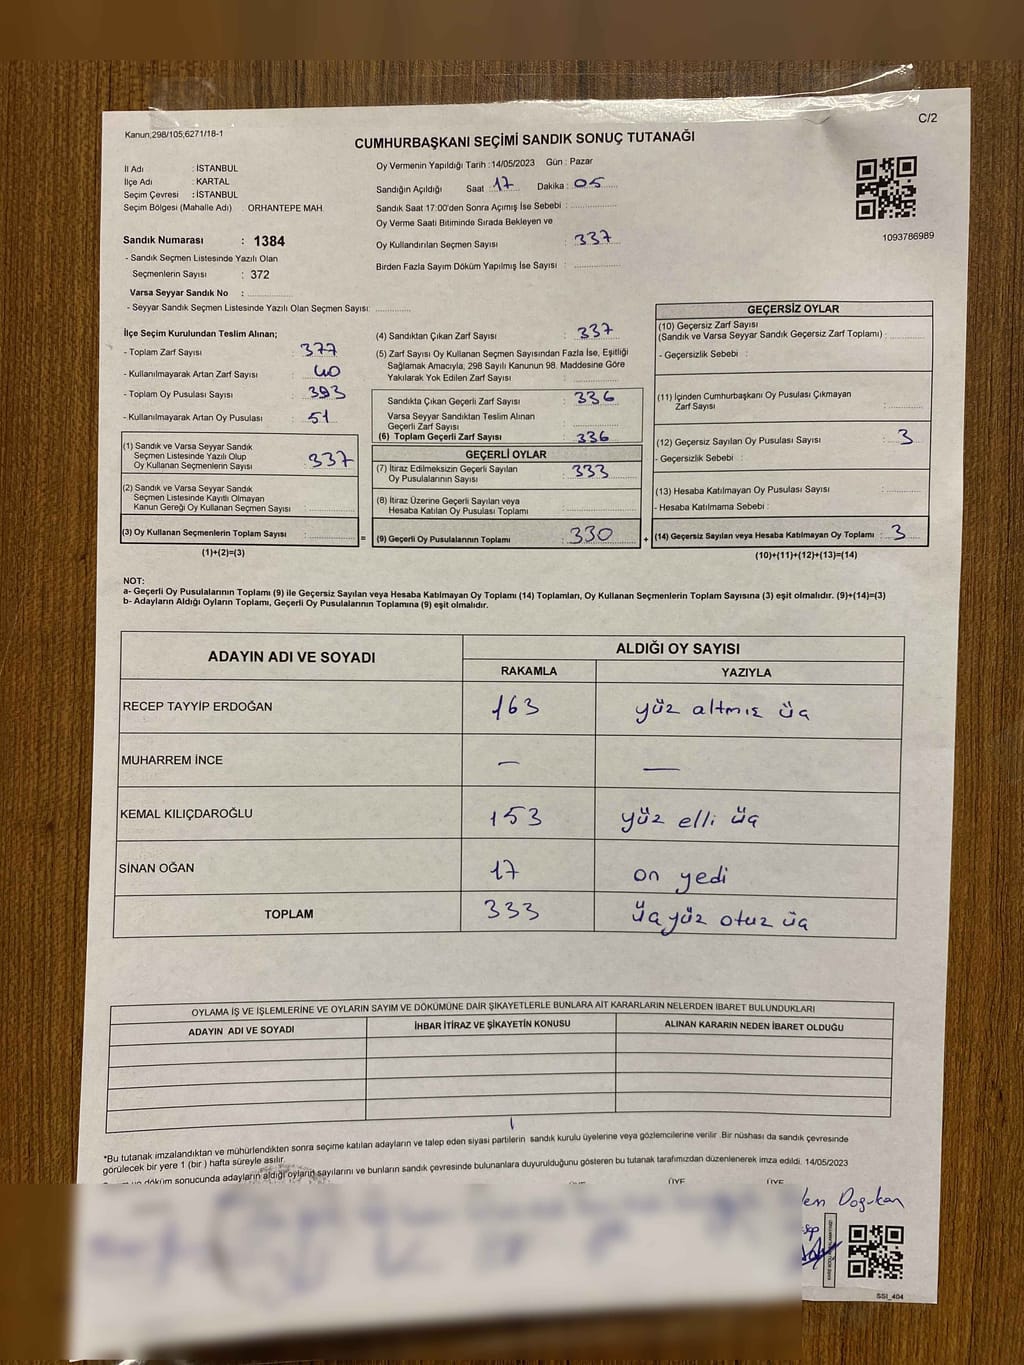 Kanun;298/105;6271/18-1
C/2
CUMHURBAŞKANI SEÇİMİ SANDIK SONUÇ TUTANAĞI
İl Adı : İSTANBUL
İlçe Adı : KARTAL
Seçim Çevresi : İSTANBUL
Seçim Bölgesi (Mahalle Adı) ORHANTEPE MAH.
Sandık Numarası : 1384
- Sandık Seçmen Listesinde Yazılı Olan
Seçmenlerin Sayısı : 372
Varsa Seyyar Sandık No :
- Seyyar Sandık Seçmen Listesinde Yazılı Olan Seçmen Sayısı:
Oy Vermenin Yapıldığı Tarih : 14/05/2023 Gün : Pazar
Sandığın Açıldığı Saat : 17 Dakika : 05
Sandık Saat 17:00'den Sonra Açımış İse Sebebi :
Oy Verme Saati Bitiminde Sırada Bekleyen ve
Oy Kullandırılan Seçmen Sayısı : 337
Birden Fazla Sayım Döküm Yapılmış İse Sayısı :
1093786989
İlçe Seçim Kurulundan Teslim Alınan;
- Toplam Zarf Sayısı : 377
- Kullanılmayarak Artan Zarf Sayısı : 40
- Toplam Oy Pusulası Sayısı : 393
- Kullanılmayarak Artan Oy Pusulası : 51
(1) Sandık ve Varsa Seyyar Sandık
Seçmen Listesinde Yazılı Olup
Oy Kullanan Seçmenlerin Sayısı : 337
(2) Sandık ve Varsa Seyyar Sandık
Seçmen Listesinde Kayıtlı Olmayan
Kanun Gereği Oy Kullanan Seçmen Sayısı :
(3) Oy Kullanan Seçmenlerin Toplam Sayısı :
(1)+(2)=(3)
=
(4) Sandıktan Çıkan Zarf Sayısı : 337
(5) Zarf Sayısı Oy Kullanan Seçmen Sayısından Fazla İse, Eşitliği
Sağlamak Amacıyla; 298 Sayılı Kanunun 98. Maddesine Göre
Yakılarak Yok Edilen Zarf Sayısı :
Sandıkta Çıkan Geçerli Zarf Sayısı : 336
Varsa Seyyar Sandıktan Teslim Alınan
Geçerli Zarf Sayısı :
(6) Toplam Geçerli Zarf Sayısı : 336
GEÇERLİ OYLAR
(7) İtiraz Edilmeksizin Geçerli Sayılan
Oy Pusulalarının Sayısı : 333
(8) İtiraz Üzerine Geçerli Sayılan veya
Hesaba Katılan Oy Pusulası Toplamı :
(9) Geçerli Oy Pusulalarının Toplamı : 330
+
GEÇERSİZ OYLAR
(10) Geçersiz Zarf Sayısı
(Sandık ve Varsa Seyyar Sandık Geçersiz Zarf Toplamı) :
- Geçersizlik Sebebi :
(11) İçinden Cumhurbaşkanı Oy Pusulası Çıkmayan
Zarf Sayısı :
(12) Geçersiz Sayılan Oy Pusulası Sayısı : 3
- Geçersizlik Sebebi :
(13) Hesaba Katılmayan Oy Pusulası Sayısı :
- Hesaba Katılmama Sebebi :
(14) Geçersiz Sayılan veya Hesaba Katılmayan Oy Toplamı : 3
(10)+(11)+(12)+(13)=(14)
NOT:
a- Geçerli Oy Pusulalarının Toplamı (9) ile Geçersiz Sayılan veya Hesaba Katılmayan Oy Toplamı (14) Toplamları, Oy Kullanan Seçmenlerin Toplam Sayısına (3) eşit olmalıdır. (9)+(14)=(3)
b- Adayların Aldığı Oyların Toplamı, Geçerli Oy Pusulalarının Toplamına (9) eşit olmalıdır.
ADAYIN ADI VE SOYADI
ALDIĞI OY SAYISI
RAKAMLA YAZIYLA
RECEP TAYYİP ERDOĞAN 163 yüz altmış üç
MUHARREM İNCE — —
KEMAL KILIÇDAROĞLU 153 yüz elli üç
SİNAN OĞAN 17 on yedi
TOPLAM 333 üçyüz otuz üç
OYLAMA İŞ VE İŞLEMLERİNE VE OYLARIN SAYIM VE DÖKÜMÜNE DAİR ŞİKAYETLERLE BUNLARA AİT KARARLARIN NELERDEN İBARET BULUNDUKLARI
ADAYIN ADI VE SOYADI İHBAR İTİRAZ VE ŞİKAYETİN KONUSU ALINAN KARARIN NEDEN İBARET OLDUĞU
*Bu tutanak imzalandıktan ve mühürlendikten sonra seçime katılan adayların ve talep eden siyasi partilerin sandık kurulu üyelerine veya gözlemcilerine verilir. Bir nüshası da sandık çevresinde
görülecek bir yere 1 (bir) hafta süreyle asılır.
döküm sonucunda adayların aldığı oyların sayılarını ve bunların sandık çevresinde bulunanlara duyurulduğunu gösteren bu tutanak tarafımızdan düzenlenerek imza edildi. 14/05/2023
ÜYE ÜYE
Doğukan
SSİ_404